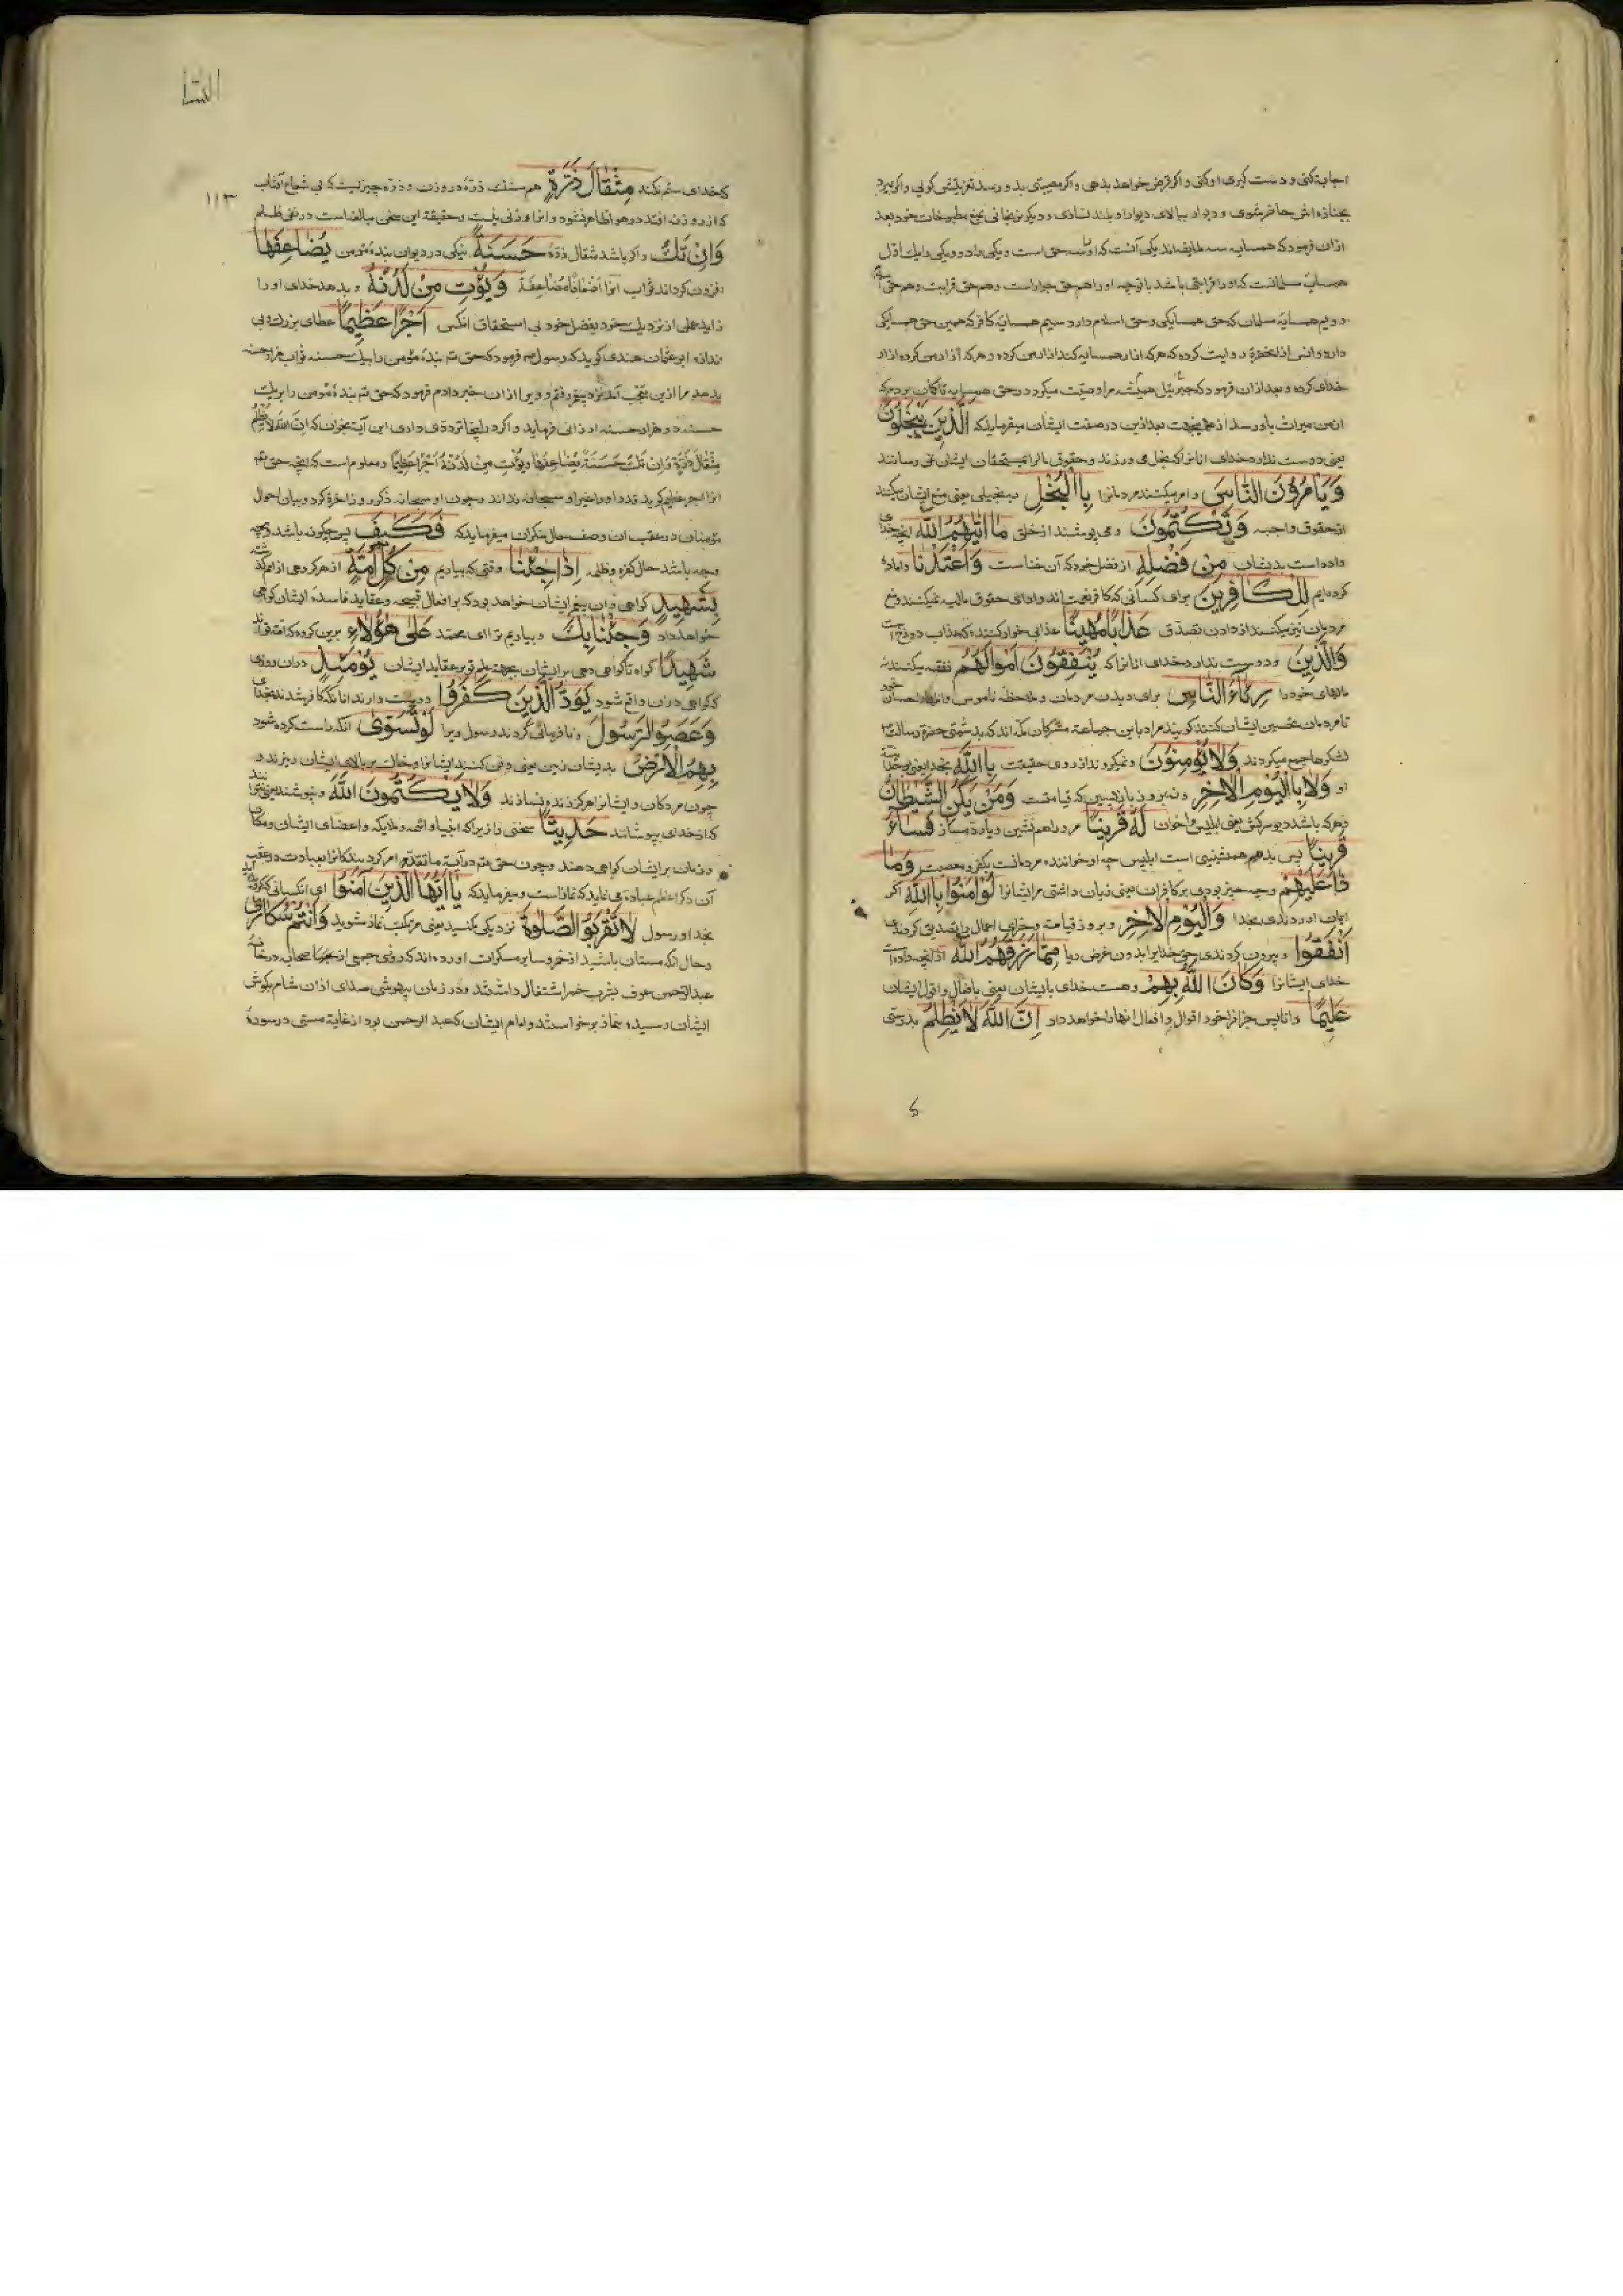 اجابة کنی و دست کیری او کنی و اکر قرض خواهد بدهی و اکر مصیبتی بدو رسد تعزیتش کوئی و اکر بمیرد
بجنازه اش حاضر شوی و دیوار ببالای دیوار او بلند نسازی و دیکر نرنجانی بمنع مطبوخات خود بعد
ازان فرمود که همسایه سه طایفه اند یکی آنست که او سه حق است و یکی دو و یکی اول
همسایهٔ مسلمانست که او قرابتی باشد با تو چه او را هم حق جوار است و هم حق قرابت و هم حق
دویم همسایهٔ مسلمان که حق همسایکی و حق اسلام دارد سیم همسایهٔ کافر که همین حق همسایکی
دارد و انس از آنحضرة روایت کرده که هر که ازار همسایه کند ازار من کرده و هر که آزار من کرده ازار
خدای کرده و بعد ازان فرمود که جبرئیل همیشه مرا وصیّت میکرد در حق همسایه تا کمان بردم که
از من میراث باو رسد از بعد ازین در صفت ایشان میفرماید که الَّذِینَ یَبْخَلُونَ
یعنی دوست ندارد خدای انانرا که بخل می ورزند و حقوق مالرا بمستحقان ایشان نمی رسانند
وَیَأْمُرُونَ النَّاسَ و امر میکنند مردمانرا بِاالْبُخْلِ ببخیلی یعنی منع ایشان میکنند
از حقوق واجبه وَیَکْتُمُونَ و می پوشند از خلق مَا اٰتٰیهُمُ اللّٰهُ انچه خدای
داده است بدیشان مِنْ فَضْلِهِ از فضل خود که آن غناست وَاَعْتَدْنَا و اماده
کرده ایم لِلْکَافِرِینَ برای کسانی که کافر نعمت اند و ادای حقوق مالیه نمیکنند و منع
مردمان نیز میکنند از دادن تصدق عَذَابًا مُهِینًا عذابی خوار کننده که عذاب دوزخ است
وَالَّذِینَ و دوست ندارد خدای انانرا که یُنْفِقُونَ اَمْوَالَهُمْ نفقه میکنند
مالهای خود را رِئَاءَ النَّاسِ برای دیدن مردمان و ملاحظه ناموس و اظهار احسان خود
تا مردمان تحسین ایشان کنند کویند مراد باین جماعة مشرکان مکّه اند که بدشمنی حضرة رسالت
لشکرها جمع میکردند وَلَا یُؤْمِنُونَ و نمیکروند از روی حقیقت بِااللّٰهِ بخدا یعنی
او وَلَا بِاالْیَوْمِ الْاٰخِرِ و نه بروز بازپسین که قیامتست وَمَنْ یَکُنِ الشَّیْطَانُ
و هر که باشد دیو سرکش یعنی ابلیس و اخوان لَهُ قَرِینًا مر او را همنشین و یار دمساز فَسَاءَ
قَرِینًا پس بد هم همنشینی است ابلیس چه او خواننده مردمانست بکفر و معصیت وَمَا
ذَا عَلَیْهِمْ و چه چیز بودی بر کافران یعنی زیان داشتی مر ایشانرا لَوْ اٰمَنُوا بِااللّٰهِ اکر
ایمان اوردندی بخدا وَالْیَوْمِ الْاٰخِرِ و بروز قیامة و بجزای اعمال تصدیق کردندی
اَنْفَقُوا و بیرون کردندی حق خدایرا بدون غرض ریا مِمَّا رَزَقَهُمُ اللّٰهُ از انچه داده است
خدای ایشانرا وَکَانَ اللّٰهُ بِهِمْ و هست خدای بایشان یعنی بافعال و اقوال ایشان
عَلِیمًا دانا پس جزا فراخور اقوال و افعال انها را خواهد داد اِنَّ اللّٰهَ لَا یَظْلِمُ بدرستی
النسا
۱۱۳
که خدای ستم نکند مِثْقَالَ ذَرَّةٍ هم سنک ذرّهٔ در وزن و ذرّه چیزیست که بی شعاع آفتاب
که از روزنه افتد در هوا ظاهر نشود و انرا وزنی نیست و حقیقة این سخن مبالغه است در نفی ظلم
وَاِنْ تَكُ و اکر باشد مثقال ذرّهٔ حَسَنَةً نیکی در دیوان بندهٔ مؤمن یُضَاعِفْهَا
افزون کرداند ثواب انرا اَضْعَافًا مُضَاعَفَةً وَیُؤْتِ مِنْ لَدُنْهُ و بدهد خدای او را
زاید بر عمل از نزدیك خود بفضل خود بی استحقاق انکس اَجْرًا عَظِیمًا عطای بزرك و بی
اندازه ابو عثمان هندی کوید که رسول فرمود که حق بندهٔ مؤمن را بیك حسنه ثواب هزار حسنه
بدهد مرا ازین تعجّب آمد نزد پیغمبر رفتم و ویرا ازان خبر دادم فرمود که حق بندهٔ مؤمن را بر یك
حسنه دو هزار حسنه ارزانی فرماید و اکر در اینجا تردّدی داری این آیة بخوان که اِنَّ اللّٰهَ لَا یَظْلِمُ
مِثْقَالَ ذَرَّةٍ وَاِنْ تَكُ حَسَنَةً یُضَاعِفْهَا وَیُؤْتِ مِنْ لَدُنْهُ اَجْرًا عَظِیمًا و معلوم است که انچه حق
انرا اجر عظیم کوید قدر او را غیر او سبحانه نداند و چون او سبحانه ذکر روز اخرة کرد و بیان احوال
مؤمنان در عقب ان وصف حال منکران میفرماید که فَکَیْفَ پس چکونه باشد و چه
وجه باشد حال کفره و ظلمه اِذَا جِئْنَا وقتی که بیاریم مِنْ کُلِّ اُمَّةٍ از هر کروهی از امم کذشته
بِشَهِیدٍ کواهی و ان پیغمبر ایشان خواهد بود که بر افعال قبیحه و عقاید فاسدهٔ ایشان کواهی
خواهد داد وَجِئْنَا بِكَ و بیاریم ترا ای محمّد عَلٰی هٰؤُلَاءِ برین کروه که امّت تو اند
شَهِیدًا کواه تا کواهی دهی بر ایشان بجهة علم تو بر عقاید ایشان یَوْمَئِذٍ دران روز
که کواهی دران واقع شود یَوَدُّ الَّذِینَ کَفَرُوا دوست دارند انانکه کافر شدند بخدای
وَعَصَوُا الرَّسُولَ و نا فرمانی کردند رسول ویرا لَوْ تُسَوّٰی انکه راست کرده شود
بِهِمُ الْاَرْضُ بدیشان زمین یعنی دفن کنند ایشانرا و خاك بر بالای ایشان ریزند و
چون مردکان و ایشانرا هرکز زنده نسازند وَلَا یَکْتُمُونَ اللّٰهَ و نپوشند یعنی نتوانند
که از خدای بپوشانند حَدِیثًا سخنی را زیرا که انبیا و ائمه و ملایکه و اعضای ایشان و مکان
و زمان بر ایشان کواهی دهند و چون حق در آیة ما تقدّم امر کرد بندکانرا بعبادت در عقب
آن ذکر اعظم عباده می نماید که نماز است و میفرماید که یَا اَیُّهَا الَّذِینَ اٰمَنُوا ای انکسانی که کرویده اید
بخدا و رسول لَا تَقْرَبُوا الصَّلٰوةَ نزدیکی مکنید یعنی مرتکب نماز مشوید وَاَنْتُمْ سُکَارٰی
و حال انکه مستان باشید از خمر و سایر مسکرات اورده اند که روزی جمعی از صحابه در خانهٔ
عبد الرّحمن عوف بشرب خمر اشتغال داشتند و در زمان بیهوشی صدای اذان شام بکوش
ایشان رسید بنماز برخواستند و امام ایشان که عبد الرحمن بود از غایة مستی در سورهٔ